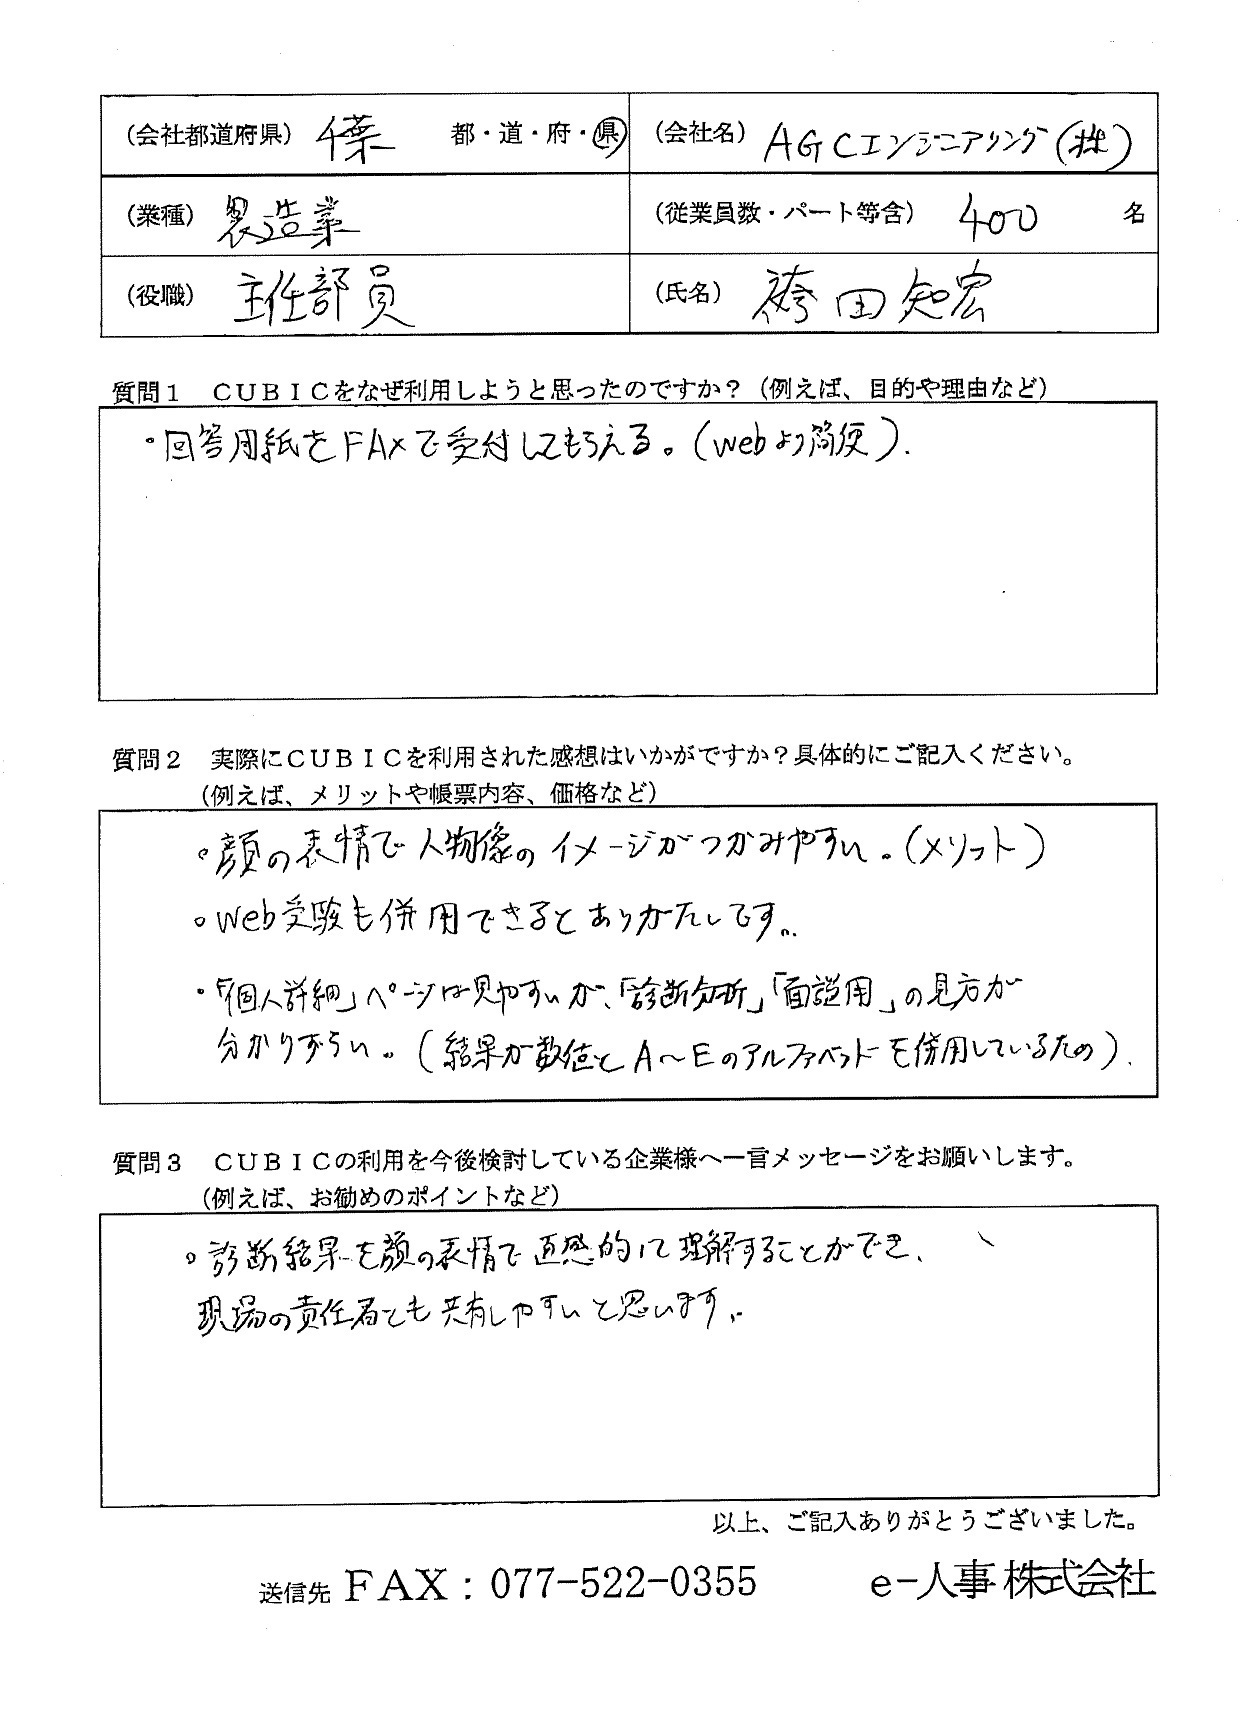 (会社都道府県) 千葉 都・道・府・県
(会社名) AGCエンジニアリング(株)
(業種) 製造業
(従業員数・パート等含) 400 名
(役職) 主任部員
(氏名) 袴田知宏
質問1 CUBICをなぜ利用しようと思ったのですか?(例えば、目的や理由など)
・回答用紙をFAXで受付してもらえる。(webより簡便).
質問2 実際にCUBICを利用された感想はいかがですか?具体的にご記入ください。
(例えば、メリットや帳票内容、価格など)
・顔の表情で人物像のイメージがつかみやすい。(メリット)
・Web受験も併用できるとありがたいです。
・「個人詳細」ページは見やすいが、「診断分析」「面談用」の見方が
分かりずらい。(結果が数値とA~Eのアルファベットを併用しているため).
質問3 CUBICの利用を今後検討している企業様へ一言メッセージをお願いします。
(例えば、お勧めのポイントなど)
・診断結果を顔の表情で直感的に理解することができ、
現場の責任者とも共有しやすいと思います。
以上、ご記入ありがとうございました。
送信先 FAX:077-522-0355 e-人事株式会社